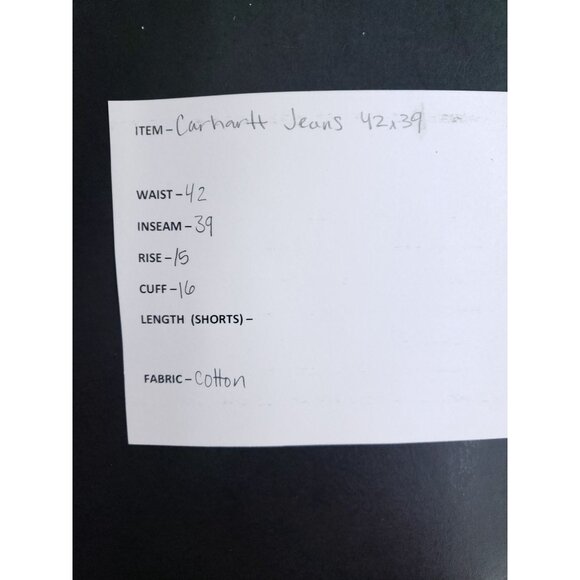 ITEM – Carhartt Jeans 42x39
WAIST – 42
INSEAM – 39
RISE – 15
CUFF – 16
LENGTH (SHORTS) –
FABRIC – Cotton